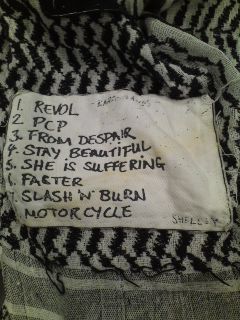 1. REVOL
2 PCP
3. FROM DESPAIR
4. STAY BEAUTIFUL
5. SHE IS SUFFERING
6. FASTER
SLASH 'N' BURN
MOTORCYCLE
SHELLEY